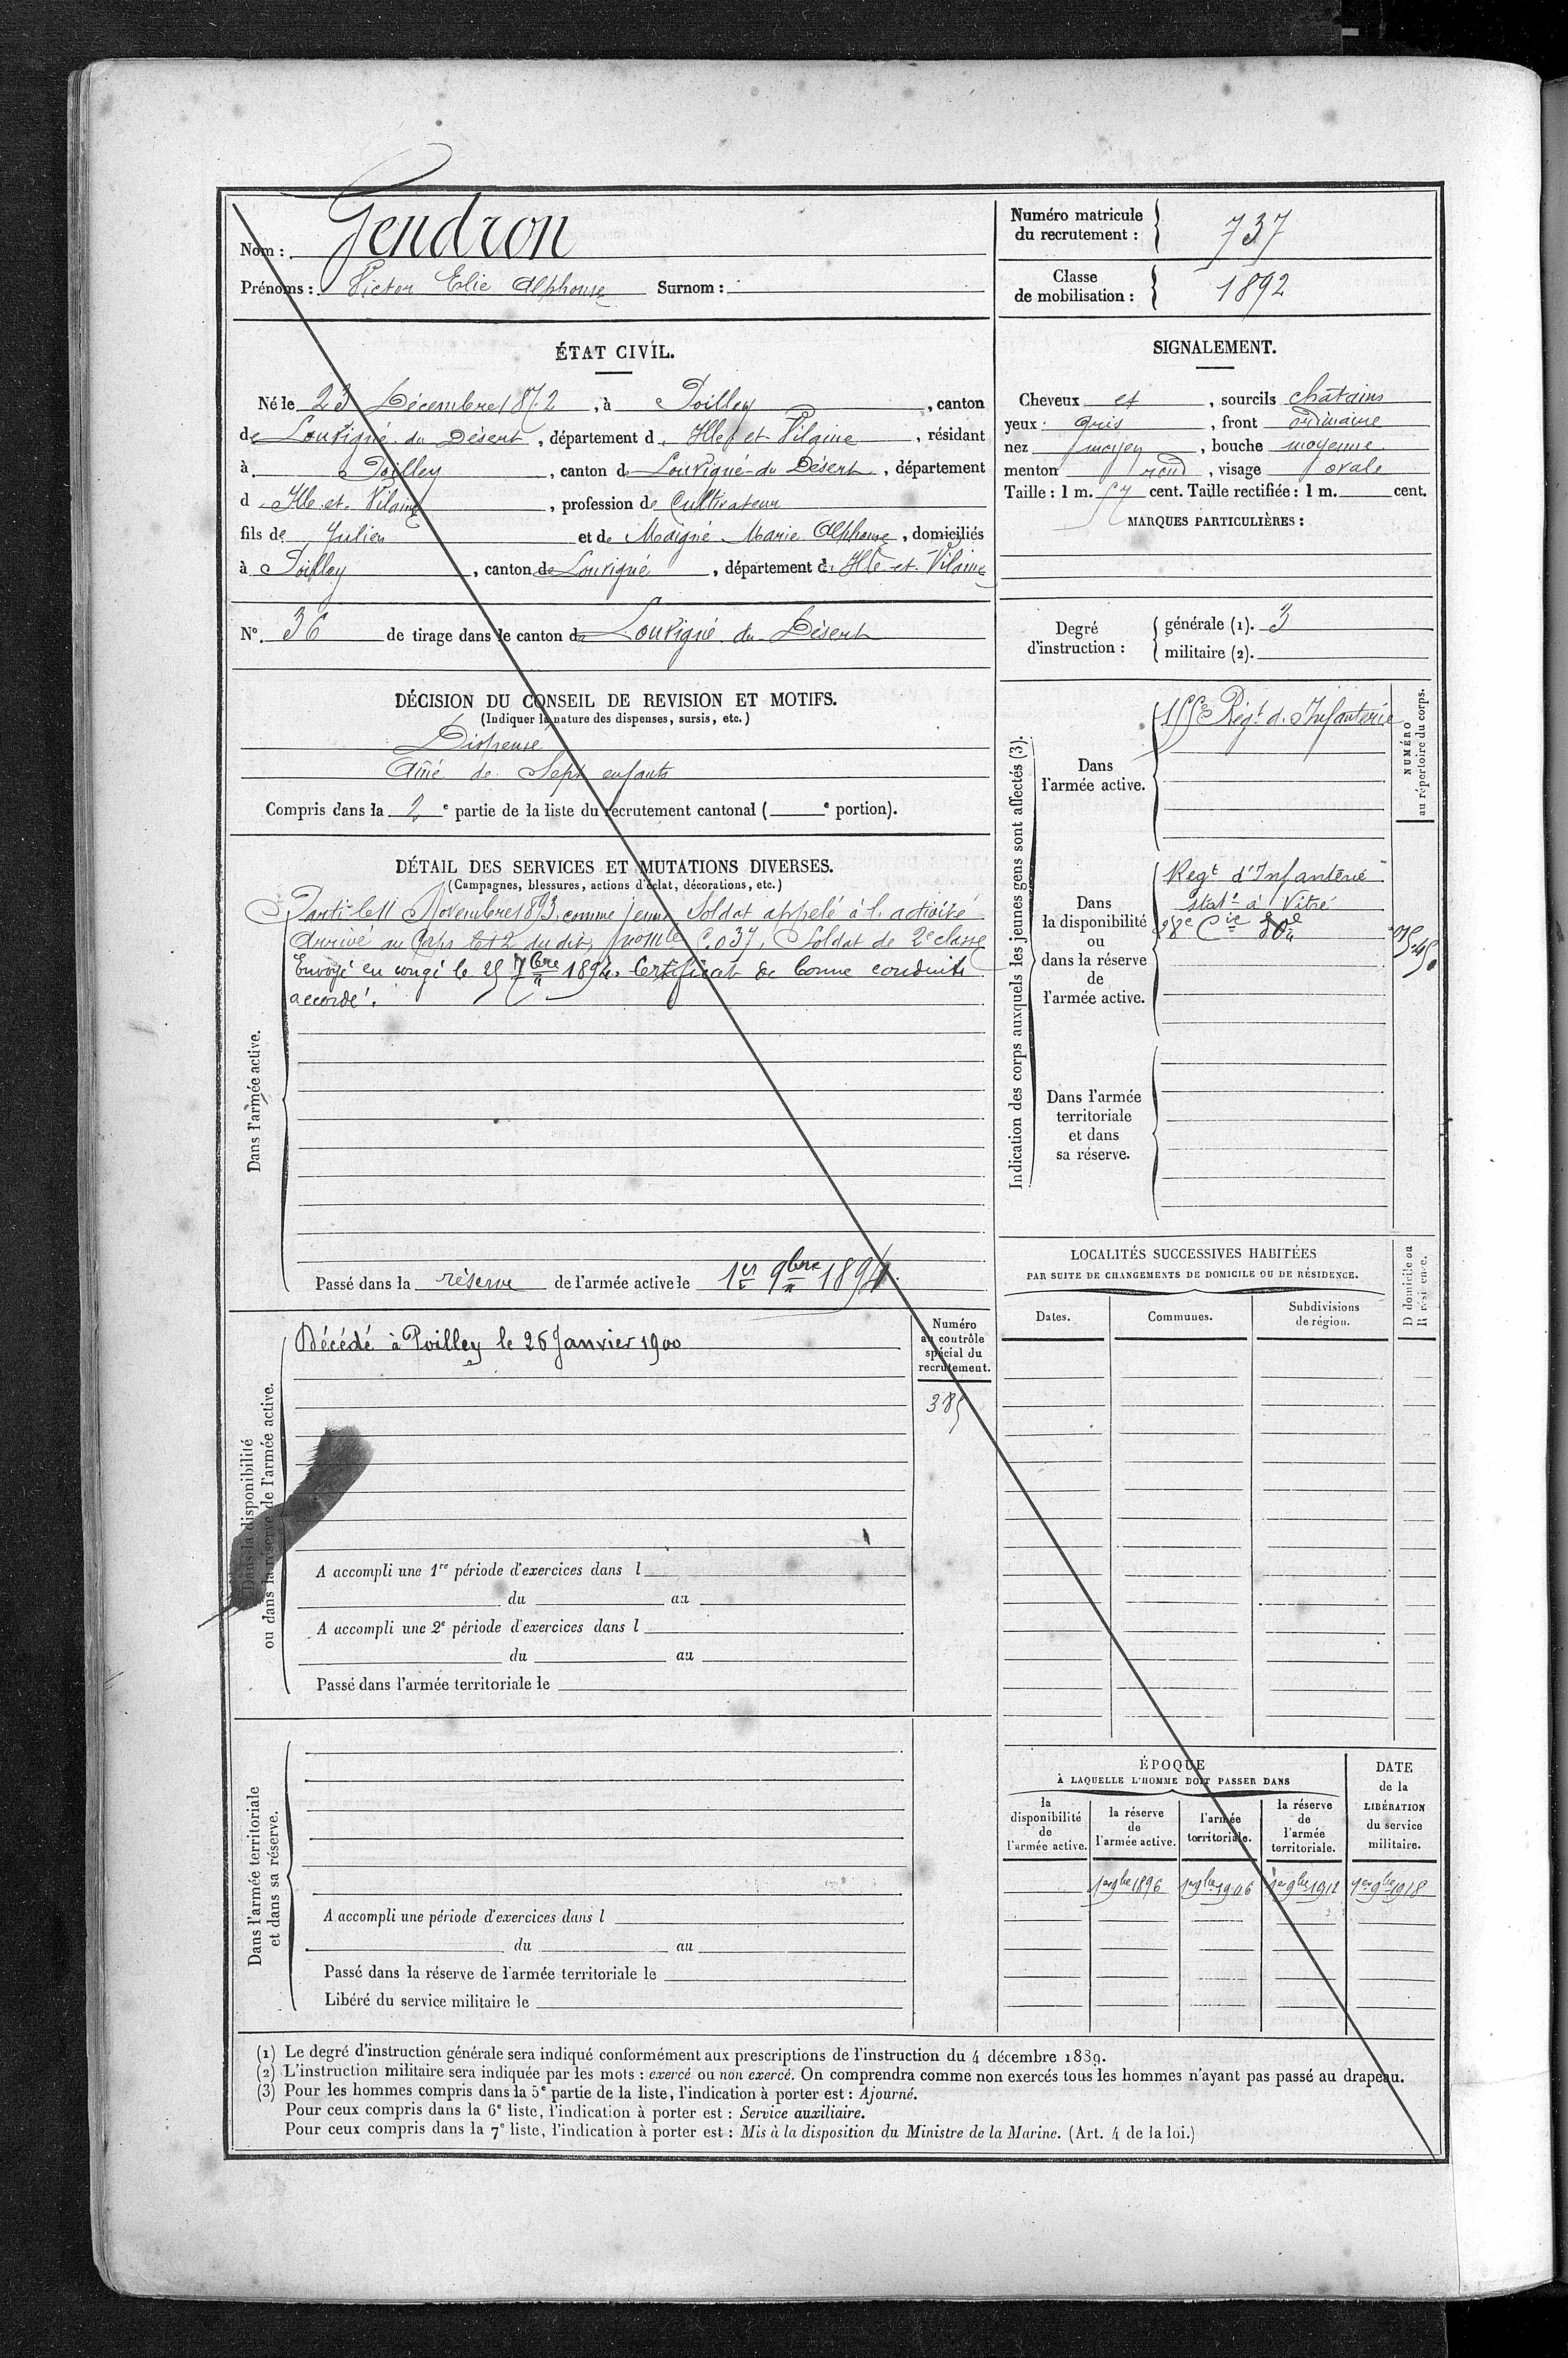 Nom : Gendron
Prénoms : Victor Elie Alphonse Surnom :
Numéro matricule
du recrutement : 737
Classe
de mobilisation : 1892
ÉTAT CIVIL.
Né le 23 Décembre 1872, à Poilley, canton
de Louvigné du Désert, département d. Ille et Vilaine, résidant
à Poilley, canton de Louvigné-du Désert, département
d Ille et Vilaine, profession de Cultivateur
fils de Julien et de Maigné Marie Alphonse, domiciliés
à Poilley, canton de Louvigné, département d. Ille-et-Vilaine
N° 36 de tirage dans le canton de Louvigné du Désert
SIGNALEMENT.
Cheveux et, sourcils chatains
yeux gris, front ordinaire
nez moyen, bouche moyenne
menton rond, visage ovale
Taille : 1 m. 57 cent. Taille rectifiée : 1 m. cent.
MARQUES PARTICULIÈRES :
Degré
d'instruction :
générale (1). 3
militaire (2).
DÉCISION DU CONSEIL DE REVISION ET MOTIFS.
(Indiquer la nature des dispenses, sursis, etc.)
Dispensé
Aîné de Sept enfants
Compris dans la 2e partie de la liste du recrutement cantonal ( e portion).
DÉTAIL DES SERVICES ET MUTATIONS DIVERSES.
(Campagnes, blessures, actions d'éclat, décorations, etc.)
Dans l'armée active.
Parti le 11 Novembre 1893 comme jeune Soldat appelé à l. activité
Arrivé au Corps le 12 du dit, Soldat de 2e classe
Envoyé en congé le 25 7bre 1894. Certificat de bonne conduite
accordé.
Passé dans la réserve de l'armée active le 1er 9bre 1894.
Dans la disponibilité
ou dans la réserve de l'armée active.
Décédé à Poilley le 26 Janvier 1900
Numéro
au contrôle
spécial du
recrutement.
385
A accompli une 1re période d'exercices dans l
du au
A accompli une 2e période d'exercices dans l
du au
Passé dans l'armée territoriale le
Dans l'armée territoriale
et dans sa réserve.
A accompli une période d'exercices dans l
du au
Passé dans la réserve de l'armée territoriale le
Libéré du service militaire le
Indication des corps auxquels les jeunes gens sont affectés (3).
Dans
l'armée active.
155e Régt d. Infanterie
NUMÉRO
au répertoire du corps.
Dans
la disponibilité
ou
dans la réserve
de
l'armée active.
Regt d'Infanterie
statné à Vitré
28e Cie
Dans l'armée
territoriale
et dans
sa réserve.
LOCALITÉS SUCCESSIVES HABITÉES
PAR SUITE DE CHANGEMENTS DE DOMICILE OU DE RÉSIDENCE.
Dates. Communes. Subdivisions
de région.
D domicile ou
R résidence.
ÉPOQUE
À LAQUELLE L'HOMME DOIT PASSER DANS
la
disponibilité
de
l'armée active.
la réserve
de
l'armée active.
l'armée
territoriale.
la réserve
de
l'armée
territoriale.
DATE
de la
LIBÉRATION
du service
militaire.
1er 9bre 1896 1er 9bre 1906 1er 9bre 1912 1er 9bre 1918
(1) Le degré d'instruction générale sera indiqué conformément aux prescriptions de l'instruction du 4 décembre 1889.
(2) L'instruction militaire sera indiquée par les mots : exercé ou non exercé. On comprendra comme non exercés tous les hommes n'ayant pas passé au drapeau.
(3) Pour les hommes compris dans la 5e partie de la liste, l'indication à porter est : Ajourné.
Pour ceux compris dans la 6e liste, l'indication à porter est : Service auxiliaire.
Pour ceux compris dans la 7e liste, l'indication à porter est : Mis à la disposition du Ministre de la Marine. (Art. 4 de la loi.)